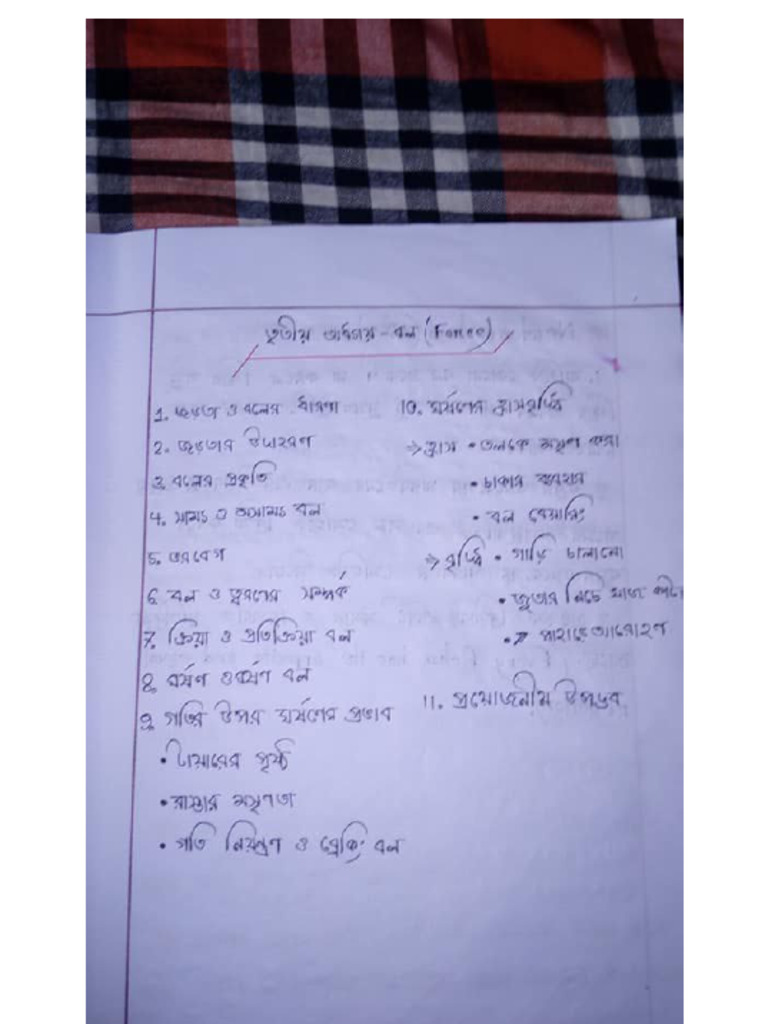 তৃতীয় অধ্যায় - বল (Force)
1. জড়তা ও বলের ধারণা
2. জড়তার উদাহরণ
3. বলের প্রকৃতি
4. সাম্য ও অসাম্য বল
5. ভরবেগ
6. বল ও ত্বরণের সম্পর্ক
7. ক্রিয়া ও প্রতিক্রিয়া বল
8. ঘর্ষণ ও ঘর্ষণ বল
9. গতির উপর ঘর্ষণের প্রভাব
• টায়ারের পৃষ্ঠ
• রাস্তার মসৃণতা
• গতি নিয়ন্ত্রণ ও ব্রেকিং বল
10. ঘর্ষণের হ্রাসবৃদ্ধি
⇒ হ্রাস • তলকে মসৃণ করা
• চাকার ব্যবহার
• বল বেয়ারিং
⇒ বৃদ্ধি • গাড়ি চালানো
• জুতার নিচে খাজ কাটা
• পাহাড়ে আরোহণ
11. প্রয়োজনীয় উপদ্রব